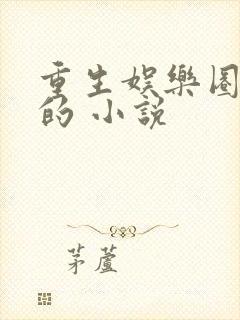 重生娱樂圈
的 小説
茅蘆